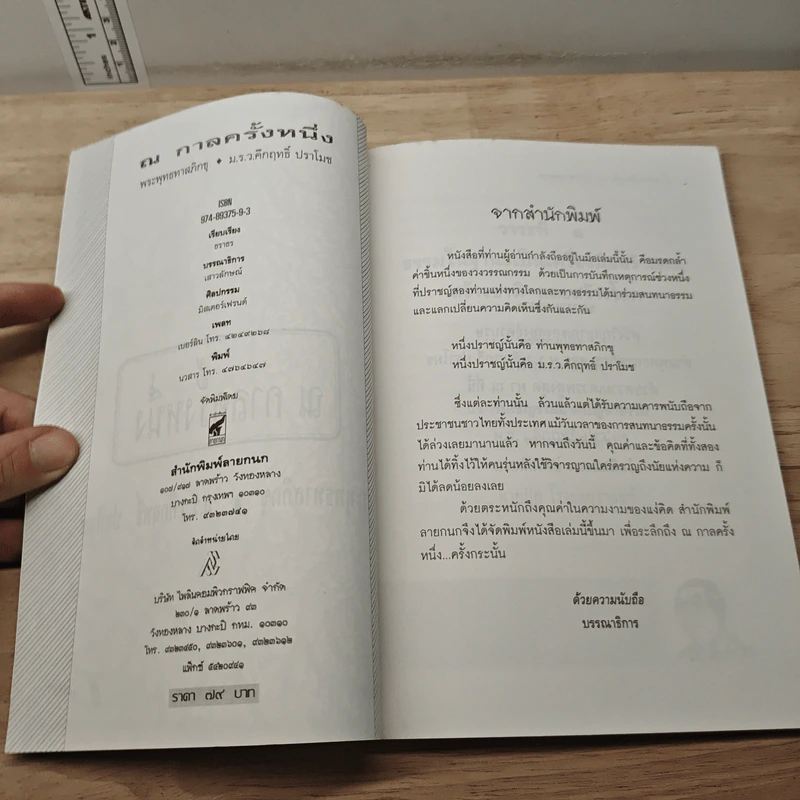 ณ กาลครั้งหนึ่ง
พระพุทธทาสภิกขุ ♦ ม.ร.ว.คึกฤทธิ์ ปราโมช
ISBN
974-89375-9-3
เรียบเรียง
ธราธร
บรรณาธิการ
เสาวลักษณ์
ศิลปกรรม
มิสเตอร์เฟรนด์
เพลท
เบอร์ดิน โทร. ๔๒๔๙๒๖๘
พิมพ์
นวสาร โทร. ๔๗๖๔๖๔๗
จัดพิมพ์โดย
สำนักพิมพ์ลายกนก
๑๐๗/๙๑๗ ลาดพร้าว วังทองหลาง
บางกะปิ กรุงเทพฯ ๑๐๓๑๐
โทร. ๙๓๒๓๗๔๑
จัดจำหน่ายโดย
บริษัท ไพลินคอมพิวกราฟฟิค จำกัด
๒๓๐/๑ ลาดพร้าว ๙๓
วังทองหลาง บางกะปิ กทม. ๑๐๓๑๐
โทร. ๙๓๒๓๔๕๐, ๙๓๒๓๖๐๑, ๙๓๒๓๖๑๒
แฟ็กซ์ ๕๔๒๐๙๔๑
ราคา ๗๙ บาท
จากสำนักพิมพ์
หนังสือที่ท่านผู้อ่านกำลังถืออยู่ในมือเล่มนี้นั้น คือมรดกล้ำ
ค่าชิ้นหนึ่งของวงวรรณกรรม ด้วยเป็นการบันทึกเหตุการณ์ช่วงหนึ่ง
ที่ปราชญ์สองท่านแห่งทางโลกและทางธรรมได้มาร่วมสนทนาธรรม
และแลกเปลี่ยนความคิดเห็นซึ่งกันและกัน
หนึ่งปราชญ์นั้นคือ ท่านพุทธทาสภิกขุ
หนึ่งปราชญ์นั้นคือ ม.ร.ว.คึกฤทธิ์ ปราโมช
ซึ่งแต่ละท่านนั้น ล้วนแล้วแต่ได้รับความเคารพนับถือจาก
ประชาชนชาวไทยทั้งประเทศ แม้วันเวลาของการสนทนาธรรมครั้งนั้น
ได้ล่วงเลยมานานแล้ว หากจนถึงวันนี้ คุณค่าและข้อคิดที่ทั้งสอง
ท่านได้ทิ้งไว้ให้คนรุ่นหลังใช้วิจารญาณใคร่ครวญถึงนัยแห่งความ ก็
มิได้ลดน้อยลงเลย
ด้วยตระหนักถึงคุณค่าในความงามของแง่คิด สำนักพิมพ์
ลายกนกจึงได้จัดพิมพ์หนังสือเล่มนี้ขึ้นมา เพื่อระลึกถึง ณ กาลครั้ง
หนึ่ง...ครั้งกระนั้น
ด้วยความนับถือ
บรรณาธิการ